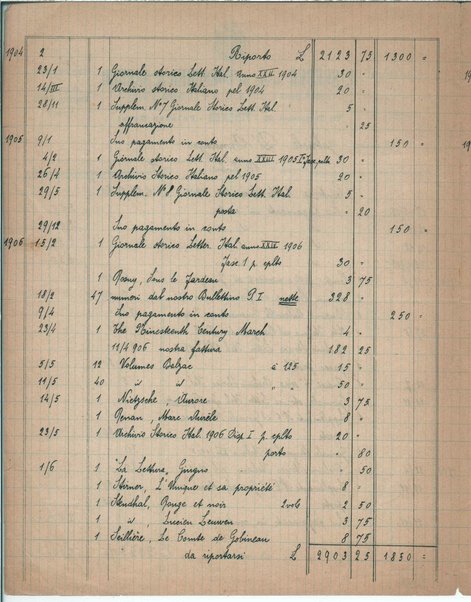 1904 2 Riporto £ 2123 75 1300 =
23/1 1 Giornale storico Lett. Ital. anno XXII 1904 30 "
14/III 1 Archivio storico Italiano pel 1904 20 "
28/11 1 Supplem. No 7 Giornale Storico Lett. Ital. 5 "
affrancazione " 25
1905 9/1 Suo pagamento in conto 150 "
4/2 1 Giornale storico Lett. Ital. anno XXIII 1905 1° fasc. pulb 30 "
26/4 1 Archivio Storico Italiano pel 1905 20 "
29/5 1 Supplem. No 8 Giornale Storico Lett. Ital. 5 "
posta " 20
29/12 Suo pagamento in conto 150 "
1906 15/2 1 Giornale storico Letter. Ital. anno XXIV 1906
Fasc. 1 p. cplto 30 "
1 Rosny, Sous le fardeau 3 75
15/2 47 numeri dal nostro Bullettino P. I nette 328 "
9/4 Suo pagamento in conto 250 "
23/4 1 The Nineteenth Century March 4 "
11/4 906 nostra fattura 182 25
5/5 12 Volumes Balzac a 125 15 "
11/5 40 " " " " 50 "
14/5 1 Nietzsche, Aurore 3 75
1 Renan, Marc Aurèle 8 "
23/5 1 Archivio Storico Ital. 1906 Disp I p. cplto 20 "
porto " 80
1/6 1 "La Lettura, Giugno " 50
1 Stirner, L'Unique et sa propriété 8 "
1 Stendhal, Rouge et noir 2 vols 2 50
1 " Lucien Leuwen 3 75
1 Seillière, Le Comte de Gobineau 8 75
da riportarsi £ 2903 25 1850 =